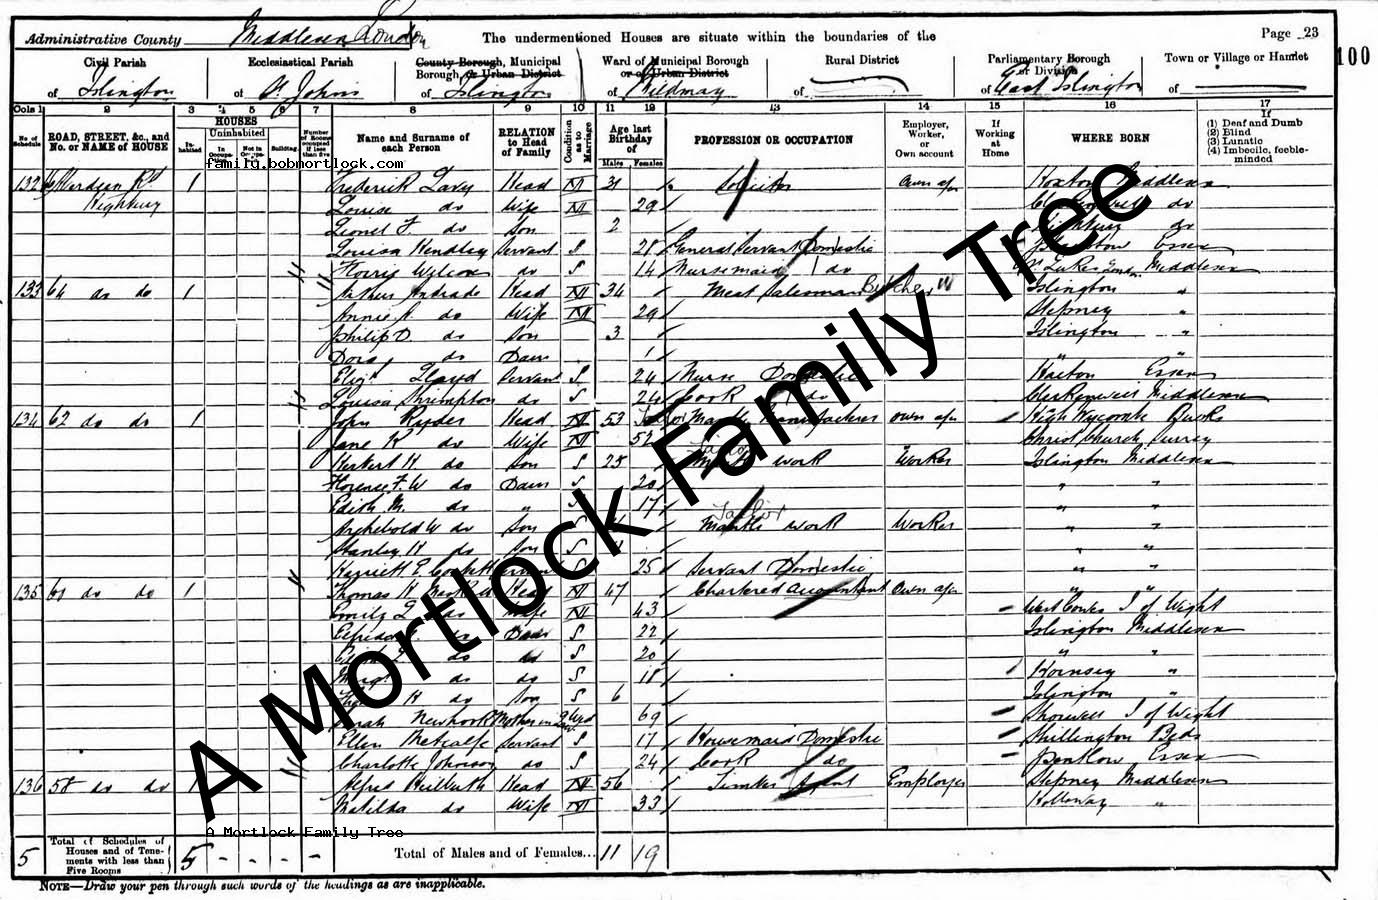 Administrative County Middlesex London The undermentioned Houses are situate within the boundaries of the Page 23
100
Civil Parish Ecclesiastical Parish County Borough, Municipal Borough, or Urban District Ward of Municipal Borough or of Urban District Rural District Parliamentary Borough or Division Town or Village or Hamlet
of Islington of St Johns of Islington of Mildmay of of East Islington of
Cols 1 2 3 4 5 6 7 8 9 10 11 12 13 14 15 16 17
No. of Schedule ROAD, STREET, &c., and No. or NAME of HOUSE HOUSES Inhabited Uninhabited In Occupa. Not in Occupa. Building Number of Rooms occupied if less than five Name and Surname of each Person RELATION to Head of Family Condition as to Marriage Age last Birthday of Males Females PROFESSION OR OCCUPATION Employer, Worker, or Own account If Working at Home WHERE BORN If (1) Deaf and Dumb (2) Blind (3) Lunatic (4) Imbecile, feeble-minded
family.bobmortlock.com
132 Aberdeen Rd 1 Frederick Head M 31 Solicitor Own a/c Hoxton Middlesex
Highbury Louise do Wife M 29 do
Lionel F. do Son 2 Highbury do
Louisa Hendley Servant S 28 General Servant Domestic Essex
Florrie Wilcox do S 14 Nursemaid do St Lukes London Middlesex
133 64 do do 1 Arthur Andrade Head M 34 Meat Salesman Butcher W Islington "
Annie A. do Wife M 29 Stepney "
Philip D. do Son 3 Islington "
Dora do Daur 1 " "
Eliz. Lloyd Servant S 24 Nurse Domestic Essex
Louisa Shrimpton do S 24 Cook do Clerkenwell Middlesex
134 62 do do 1 John Ryder Head M 53 Mantle Manufacturer Own a/c High Wycombe Bucks
Jane R. do Wife M 52 Christ Church Surrey
Herbert H. do Son S 25 Tailor Mantle work Worker Islington Middlesex
Florence F. W do Daur S 20 " "
Edith M. do " S 17 " "
Archebold W do Son S Tailor Mantle work Worker " "
Stanley H do Son S 11 " "
Harriett E Servant S 25 Servant Domestic " "
135 60 do do 1 Thomas H Head M 47 Chartered Accountant Own a/c " "
Emily L. do Wife M 43 West Cowes I of Wight
do Daur S 22 Islington Middlesex
do do S 20 " "
do do S 18 Hornsey "
H do Son S 6 Islington "
Sarah Newhook Mother in Law Wid 69 Shorwell I of Wight
Ellen Metcalfe Servant S 17 Housemaid Domestic Shillington Beds
Charlotte Johnson do S 24 Cook do Essex
136 58 do do 1 Alfred Head M 56 Timber Agent Employer Stepney Middlesex
Matilda do Wife M 33 Holloway "
A Mortlock Family Tree
A Mortlock Family Tree
5 Total of Schedules of Houses and of Tenements with less than Five Rooms 5 - - - - Total of Males and of Females... 11 19
NOTE—Draw your pen through such words of the headings as are inapplicable.